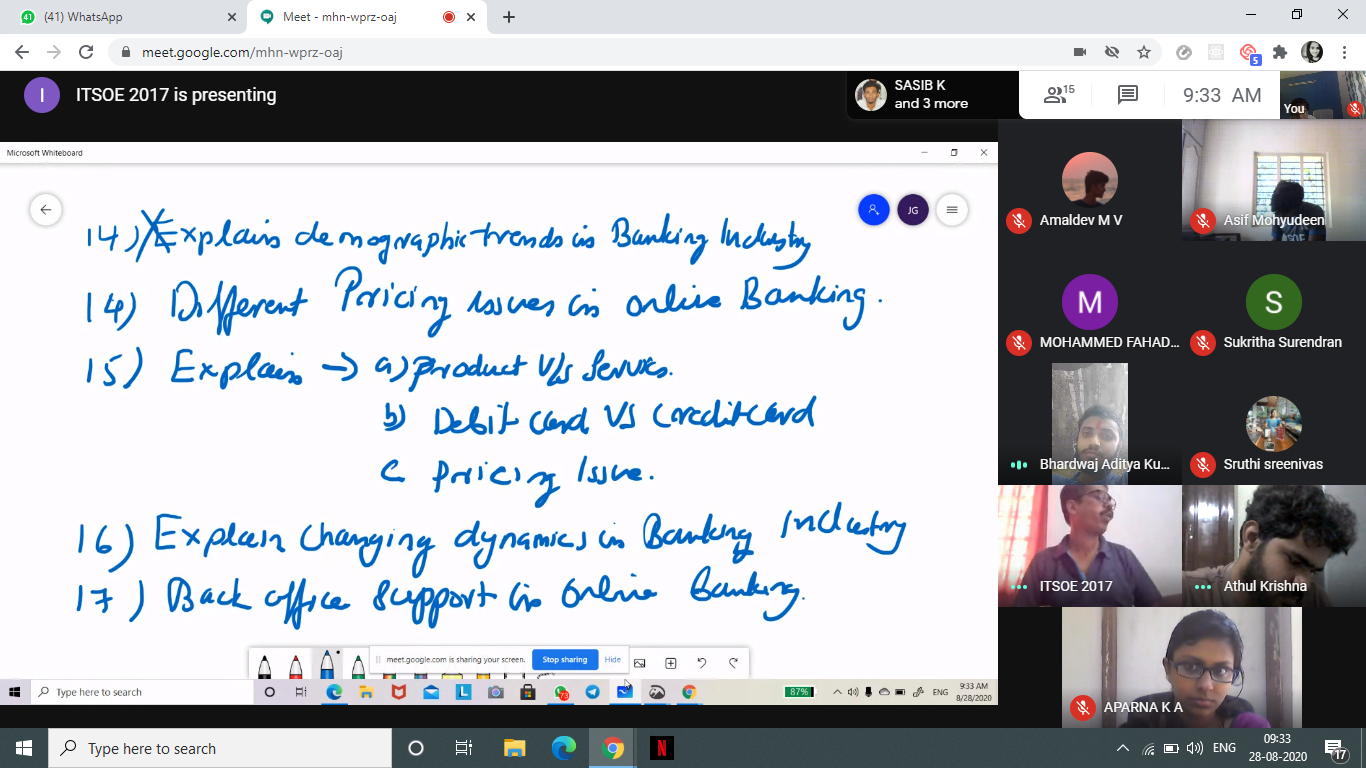 (41) WhatsApp
Meet - mhn-wprz-oaj
meet.google.com/mhn-wprz-oaj
5
I
ITSOE 2017 is presenting
SASIB K
and 3 more
15
9:33 AM
You
Microsoft Whiteboard
JG
14) Explain demographic trends in Banking Industry
14) Different Pricing issues in online Banking.
15) Explain → a) product v/s Services.
b) Debit card VS Credit Card
c Pricing Issue.
16) Explain changing dynamics in Banking Industry
17) Back office support in online Banking.
meet.google.com is sharing your screen.
Stop sharing
Hide
Type here to search
73
87%
ENG
9:33 AM
8/28/2020
Amaldev M V
Asif Mohyudeen
M
MOHAMMED FAHAD...
S
Sukritha Surendran
Bhardwaj Aditya Ku...
Sruthi sreenivas
ITSOE 2017
Athul Krishna
APARNA K A
Type here to search
N
ENG
09:33
28-08-2020
17